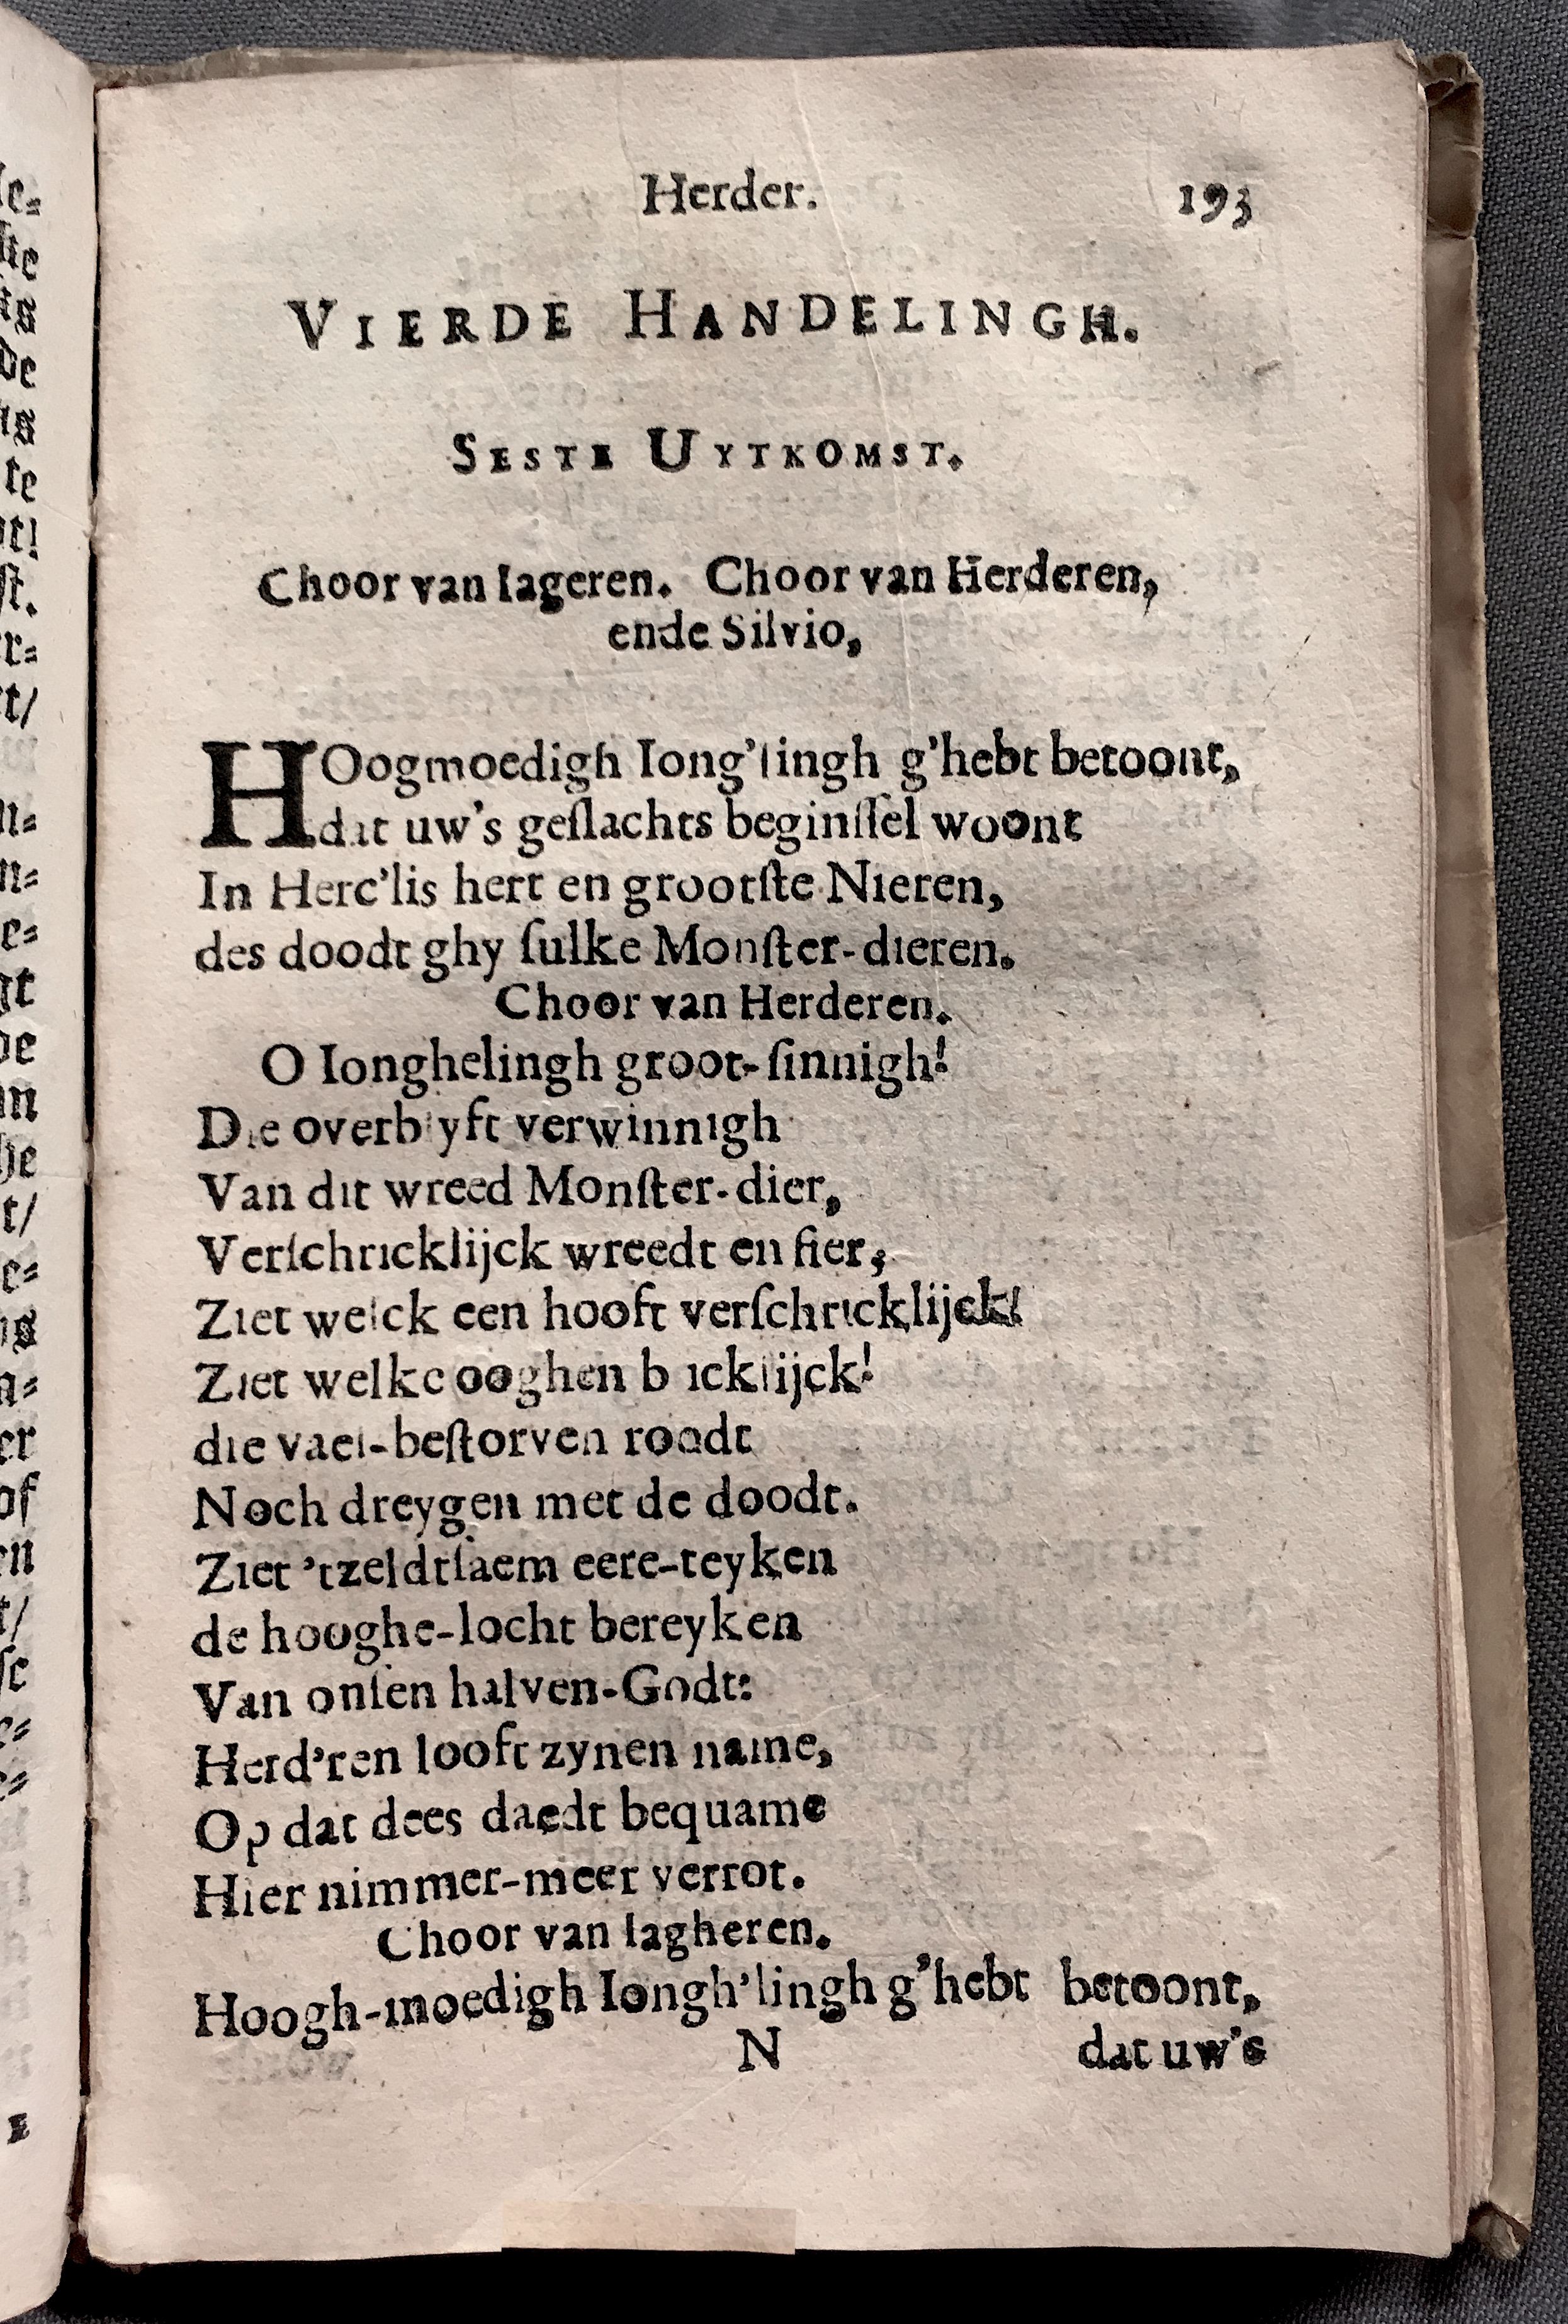 Herder. 193
VIERDE HANDELINGH.
SESTE UYTKOMST.
Choor van Iageren. Choor van Herderen,
ende Silvio,
HOogmoedigh Iong'lingh g'hebt betoont,
dat uw's geſlachts beginſſel woont
In Herc'lis hert en grootſte Nieren,
des doodt ghy ſulke Monſter-dieren.
Choor van Herderen.
O Ionghelingh groot-ſinnigh!
Die overblyft verwinnigh
Van dit wreed Monſter-dier,
Verſchricklijck wreedt en fier;
Ziet welck een hooft verſchricklijck!
Ziet welke ooghen blicklijck!
die vael-beſtorven roodt
Noch dreygen met de doodt.
Ziet 'tzeldtſaem eere-teyken
de hooghe-locht bereyken
Van onſen halven-Godt:
Herd'ren looft zynen name,
Op dat dees daedt bequame
Hier nimmer-meer verrot.
Choor van Iagheren.
Hoogh-moedigh Iongh'lingh g'hebt betoont,
N dat uw's